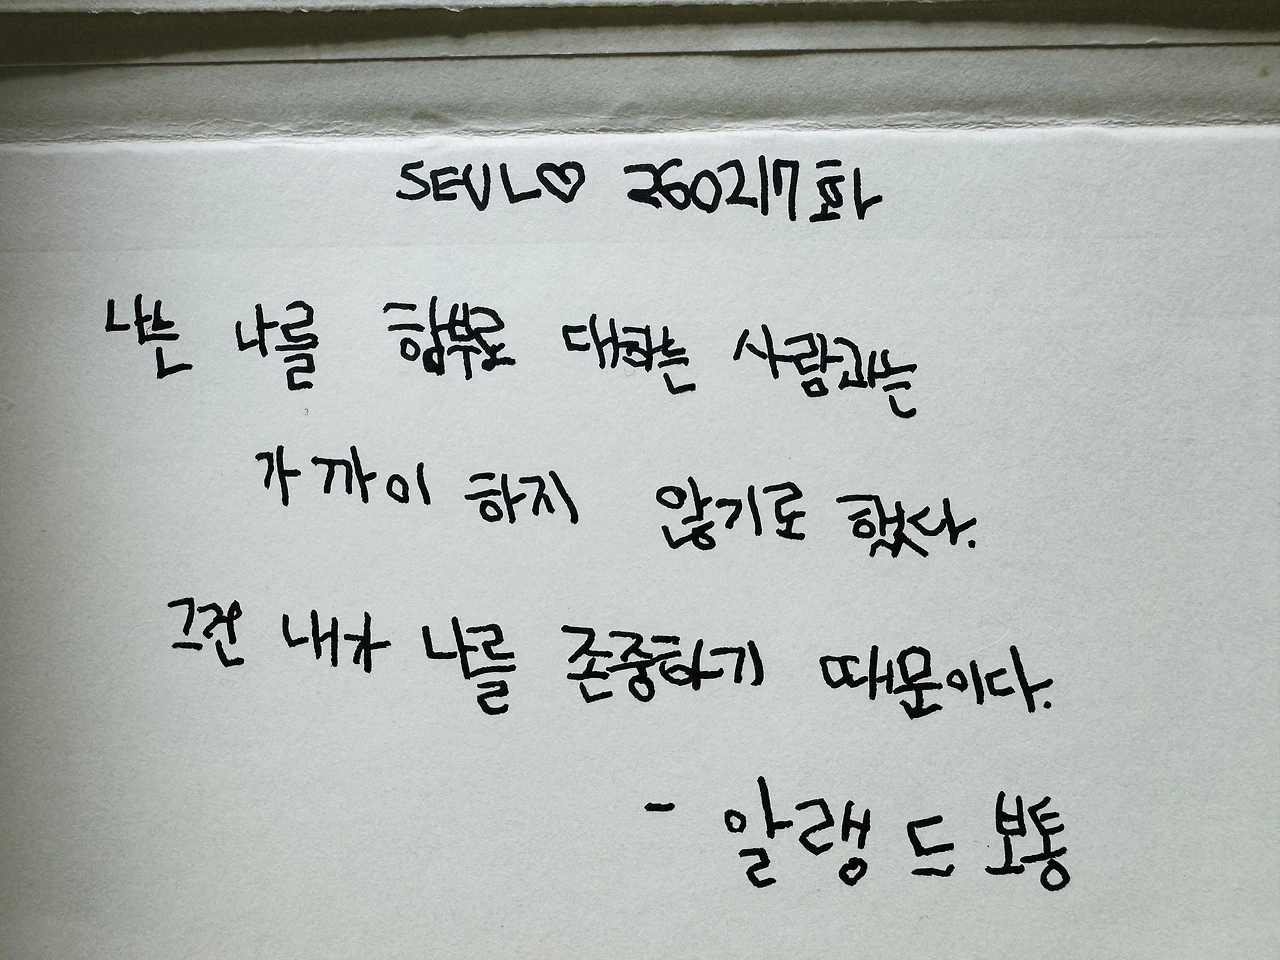 SEUL♡ 260217화
나는 나를 함부로 대하는 사람과는
가까이 하지 않기로 했다.
그건 내가 나를 존중하기 때문이다.
- 알랭 드 보통